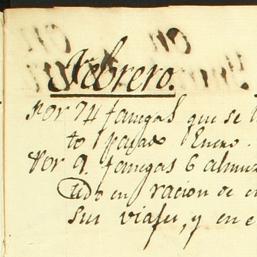 Febrero.
Por 74 fanegas que se
to pasado Enero.
Por 9. fanegas 6 almu
en racion de
sus viajes, y en e